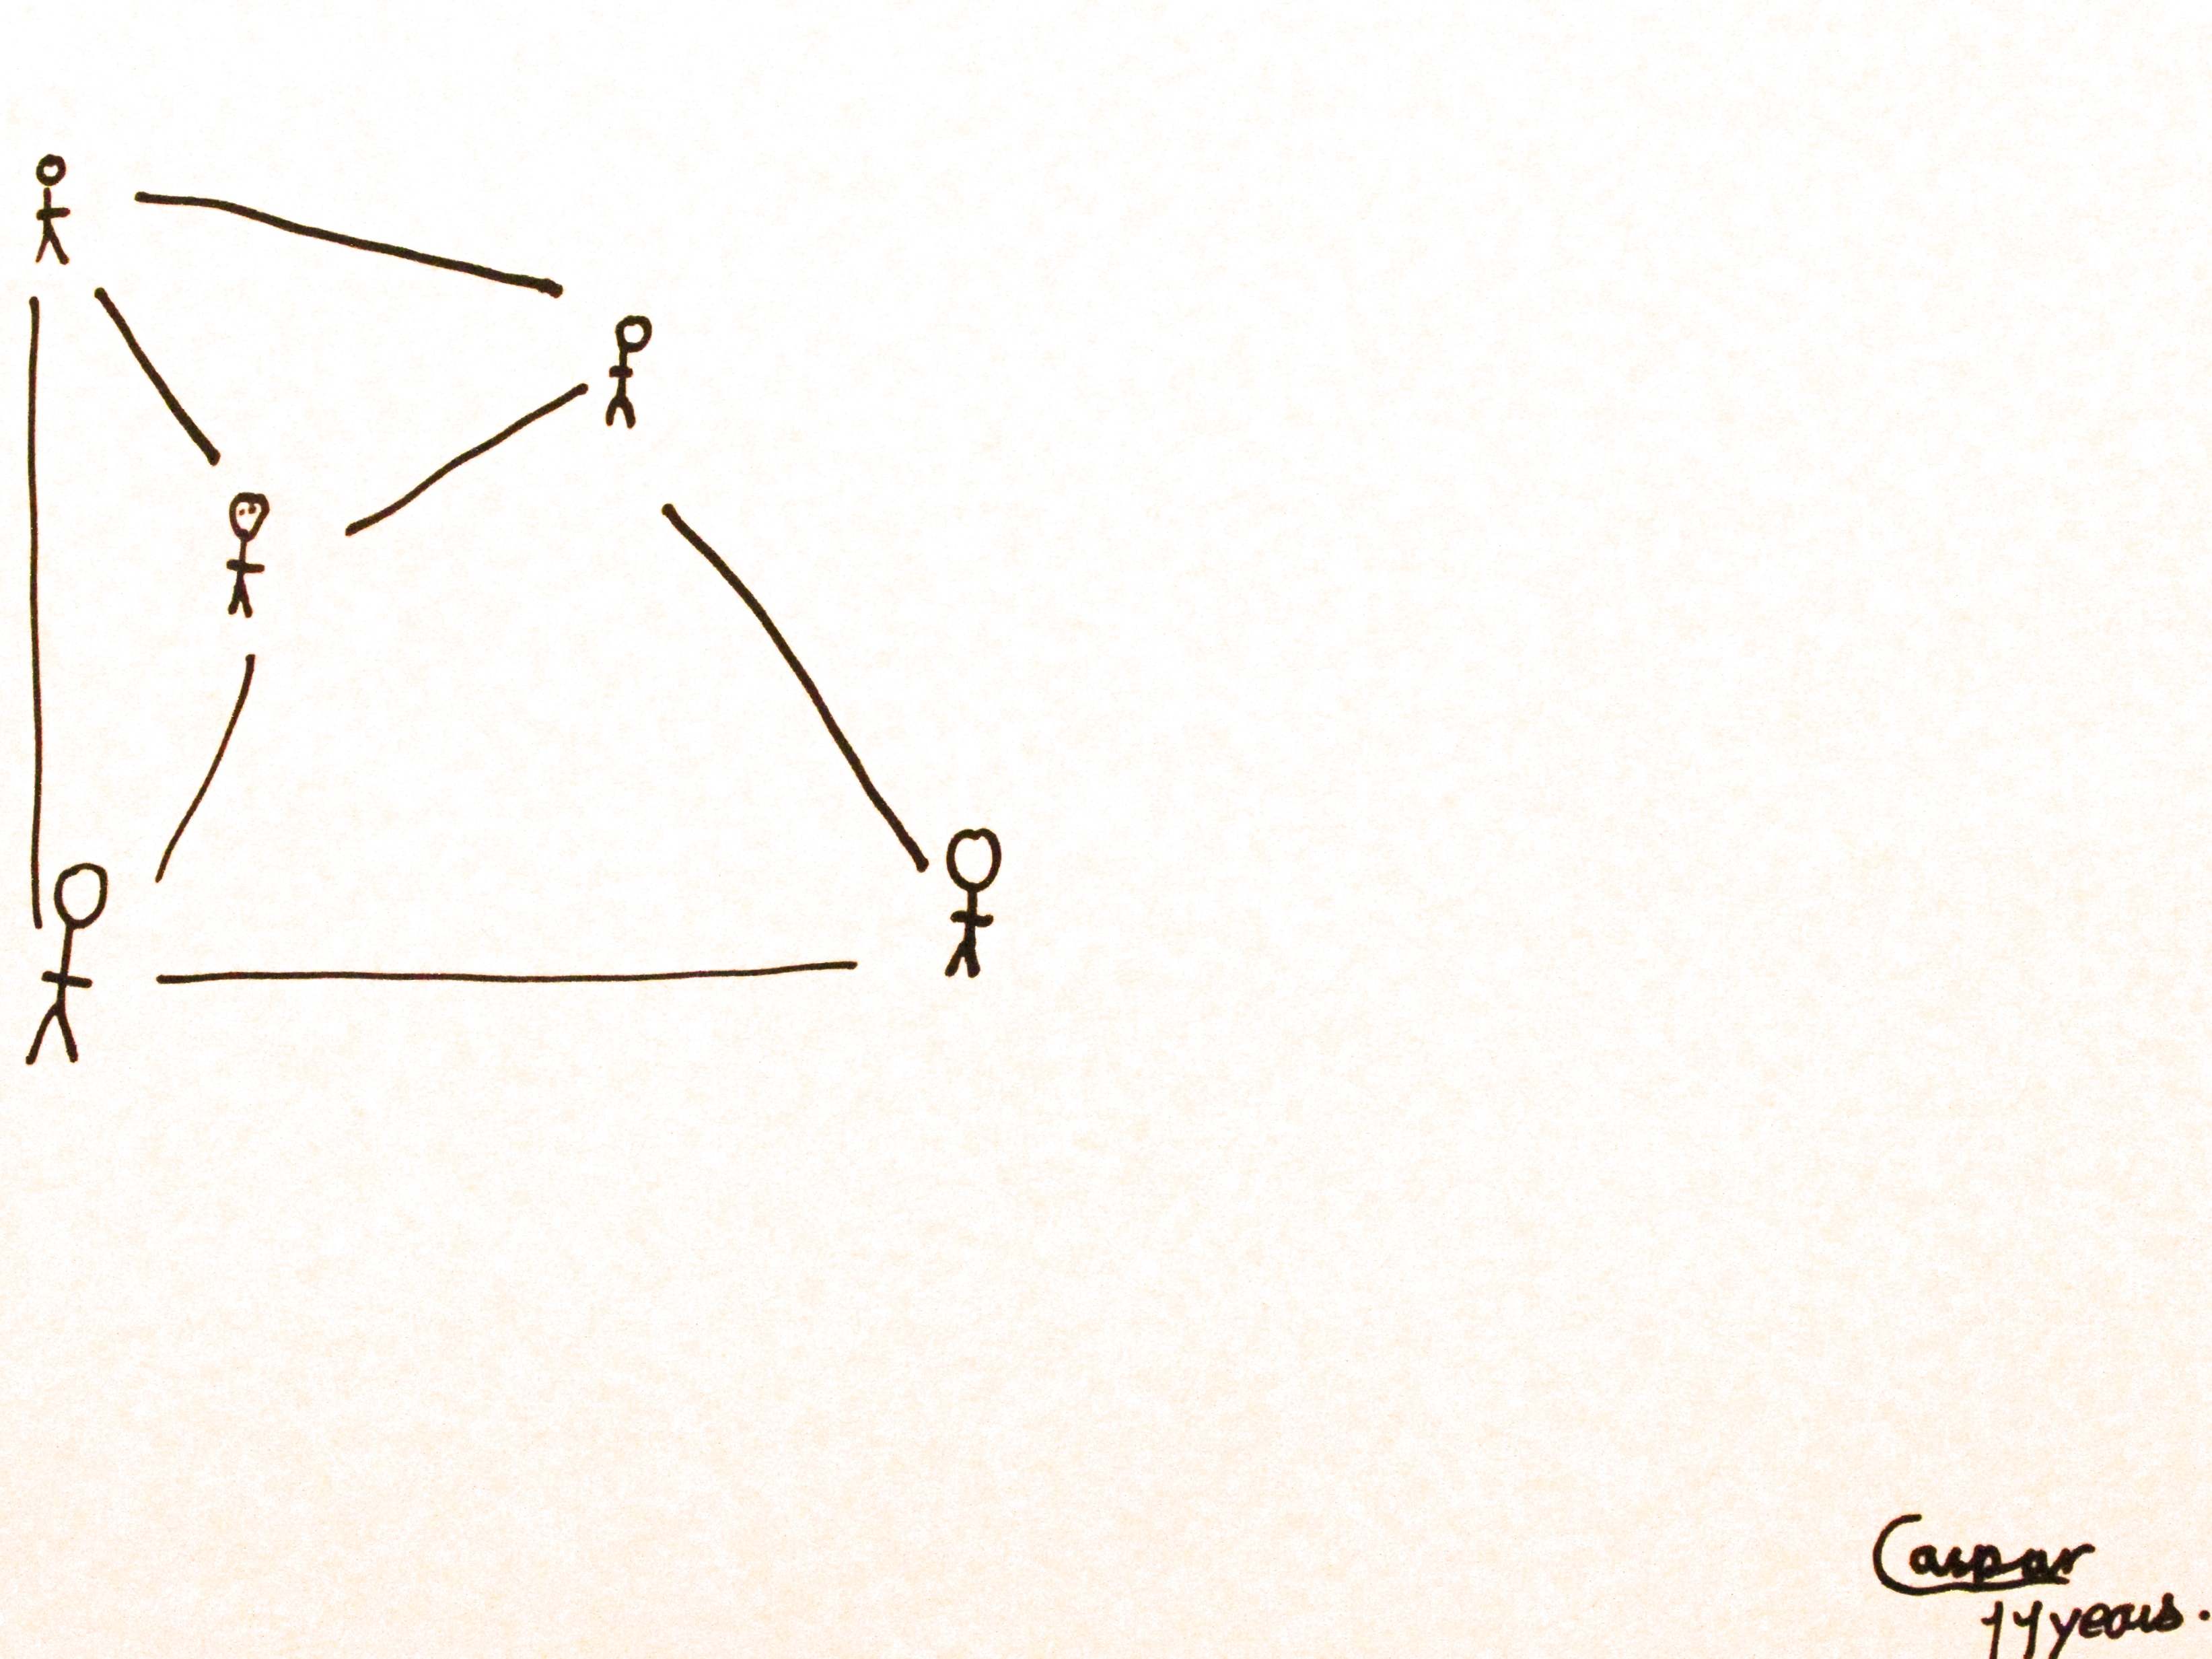 Caspar
11 years.